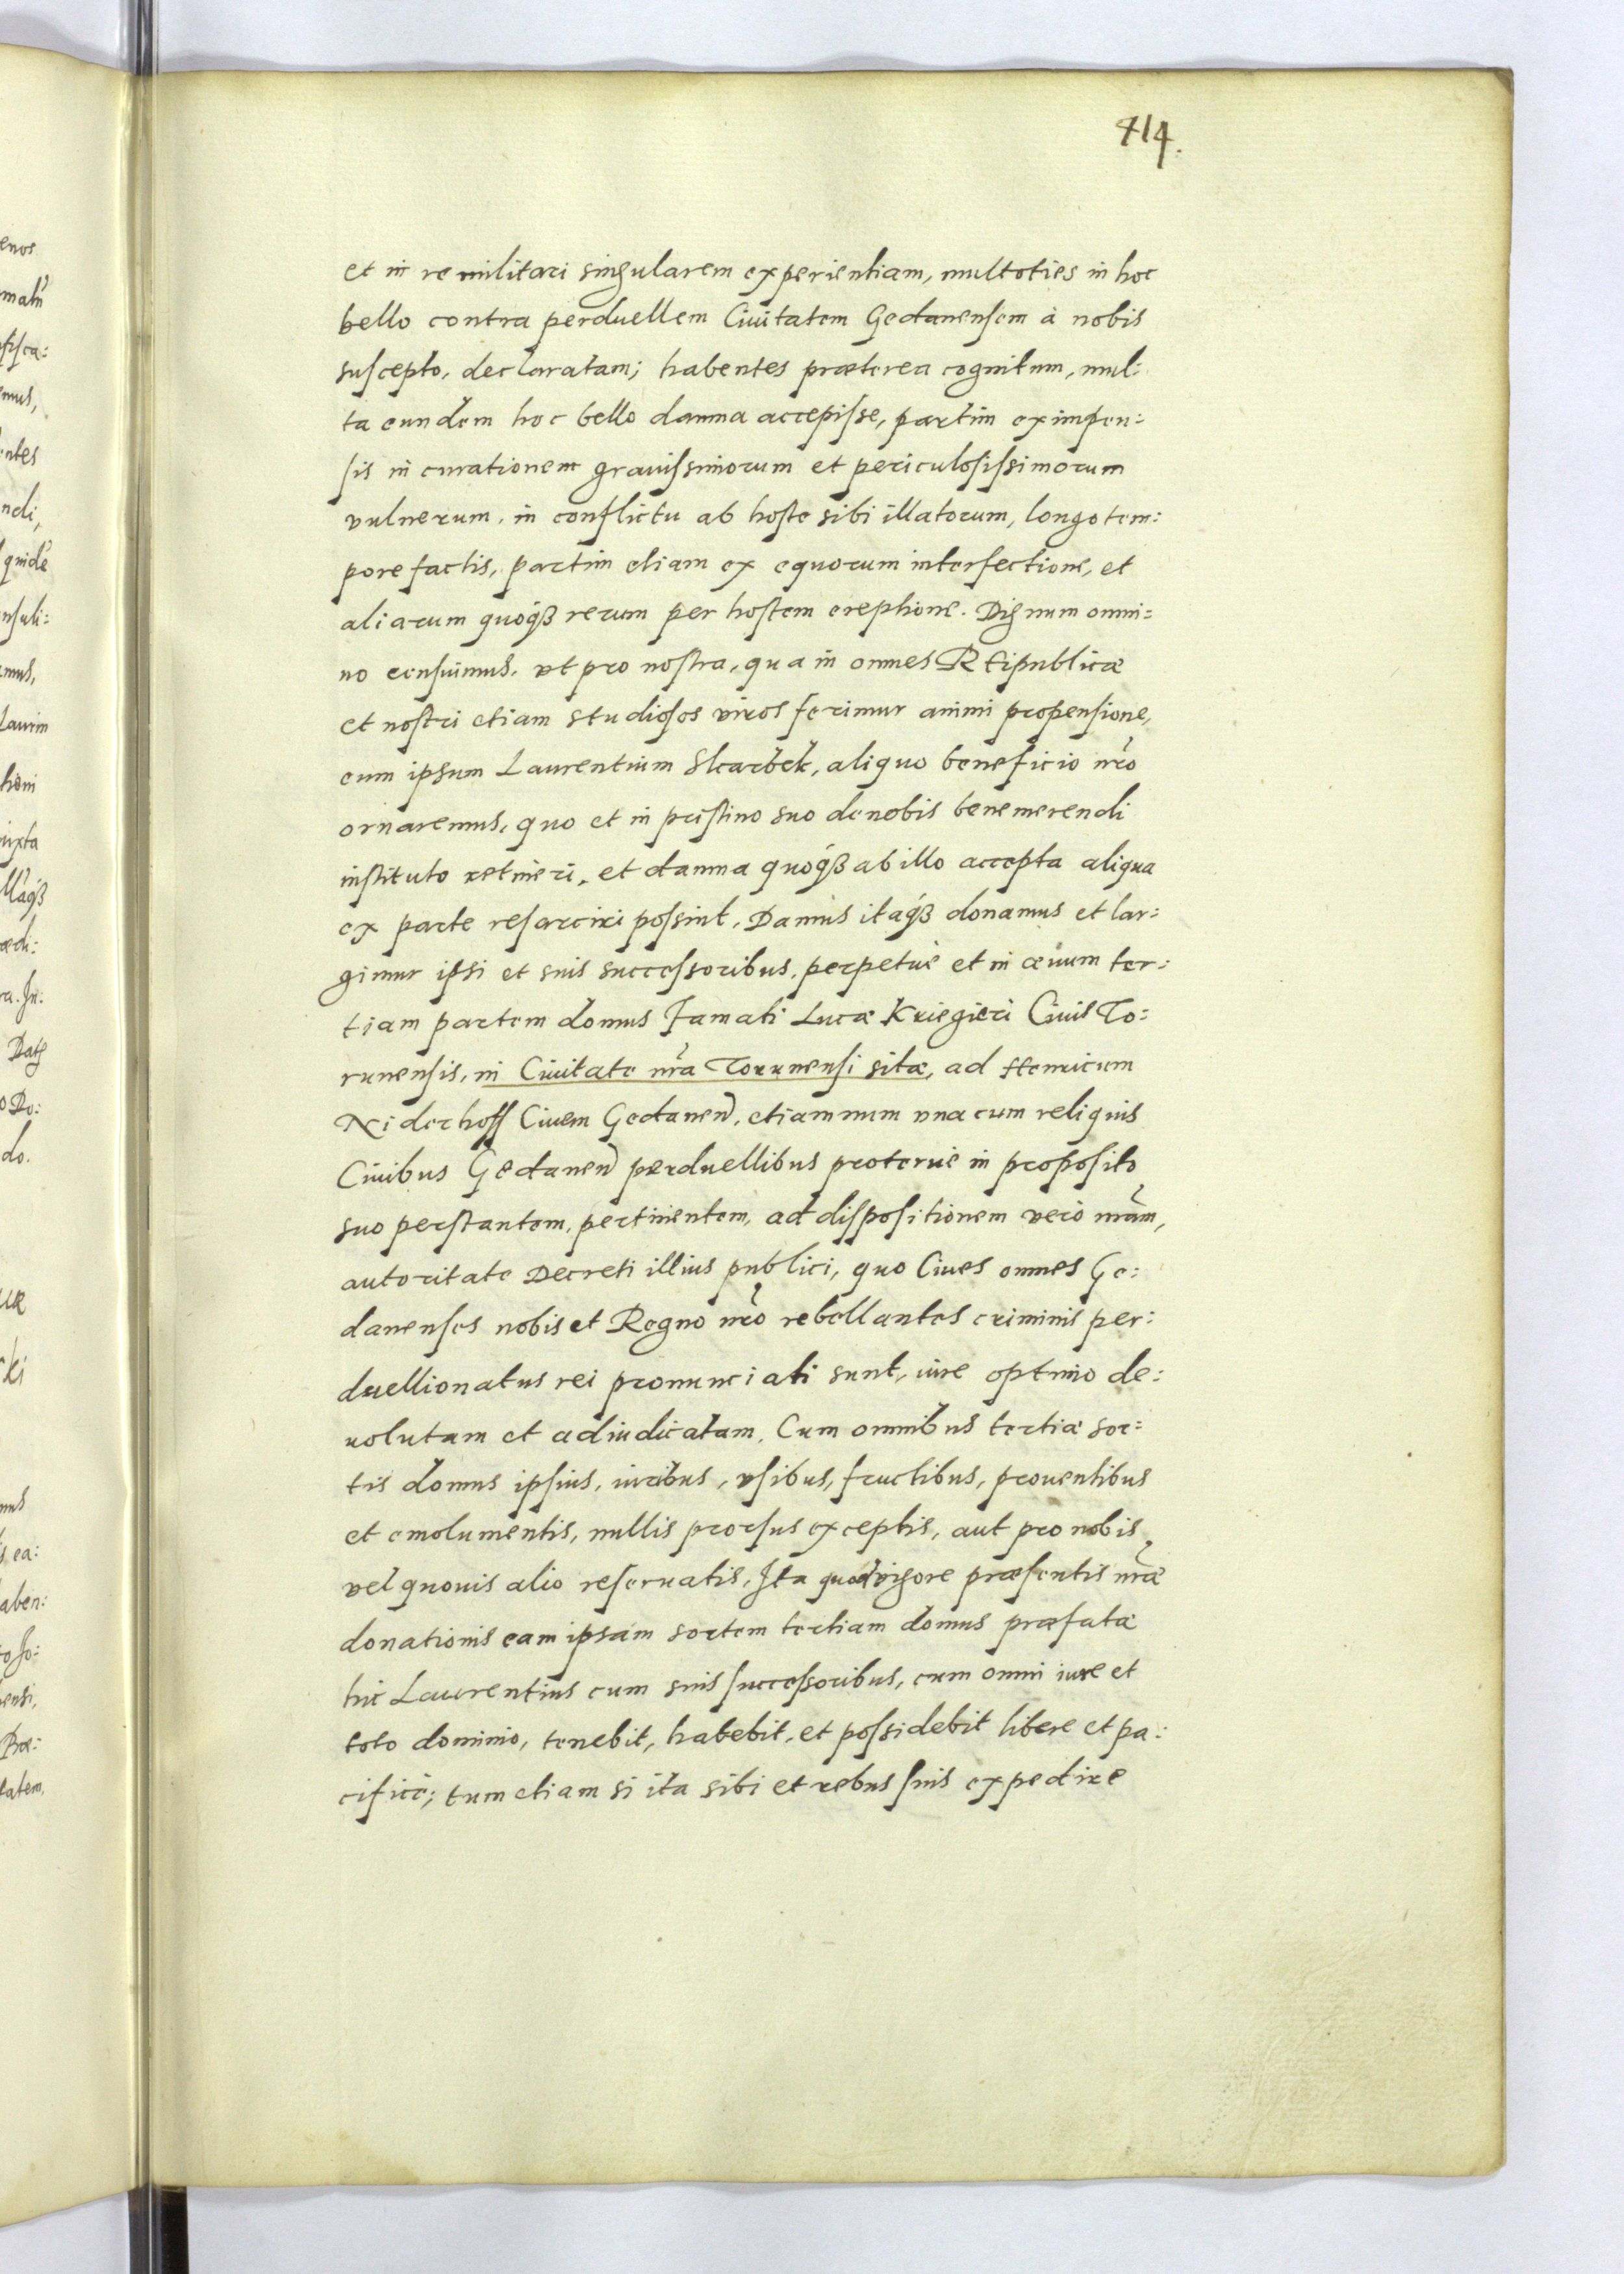 414.
et in re militari singularem experientiam, multoties in hoc
bello contra perduellem Ciuitatem Gedanensem à nobis
suscepto, declaratam; habentes præterea cognitum, mul:
ta eundem hoc bello damna accepisse, partim ex impen:
sis in curationem grauissimorum et periculosissimorum
vulnerum, in conflictu ab hoste sibi illatorum, longo tem:
pore factis, partim etiam ex equorum interfectione, et
aliarum quoqꝫ rerum per hostem ereptione. Dignum omni:
no censuimus, vt pro nostra, qua in omnes Reipublicæ
et nostri etiam studiosos viros ferimur animi propensione,
eum ipsum Laurentium Skarbek, aliquo beneficio nr̃o
ornaremus, quo et in pristino suo de nobis benemerendi
instituto retineri, et damna quoqꝫ ab illo accepta aliqua
ex parte resarciri possint, Damus itaqꝫ donamus et lar:
gimur ipsi et suis successoribus, perpetuè et in æuum ter:
tiam partem domus Famati Lucæ Kriegieri Ciuis To:
runensis, in Ciuitate nr̃a Torunensi sitæ, ad Henricum
Niderhoff Ciuem Gedaneñ, etiamnum vna cum reliquis
Ciuibus Gedaneñ perduellibus proteruè in proposito
suo perstantem, pertinentem, ad dispositionem verò nr̃am,
autoritate Decreti illius publici, quo Ciues omnes Ge:
danenses nobis et Regno nr̃o rebellantes criminis per:
duellionatus rei pronunciati sunt, iure optimo de:
uolutam et adiudicatam. Cum omnibus tertiæ sor:
tis domus ipsius, iuribus, vsibus, fructibus, prouentibus
et emolumentis, nullis prorsus exceptis, aut pro nobis
vel quouis alio reseruatis, Ita quod vigore præsentis nr̃æ
donationis eam ipsam sortem tertiam domus præfatæ
hic Laurentius cum suis successoribus, cum omni iure et
toto dominio, tenebit, habebit, et possidebit libere et pa:
cificè; tum etiam si ita sibi et rebus suis expedire